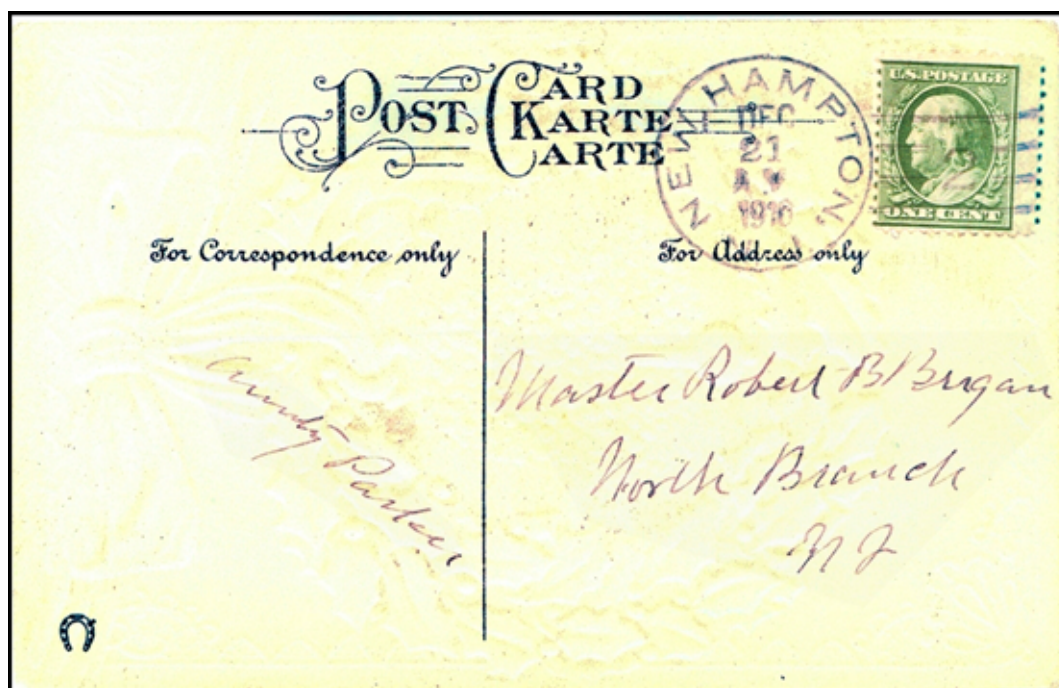 POST CARD
KARTE
CARTE
NEW HAMPTON,
DEC
21
1910
U.S. POSTAGE
ONE CENT
For Correspondence only
For Address only
Aunty Parker
Master Robert B
North Branch
N J